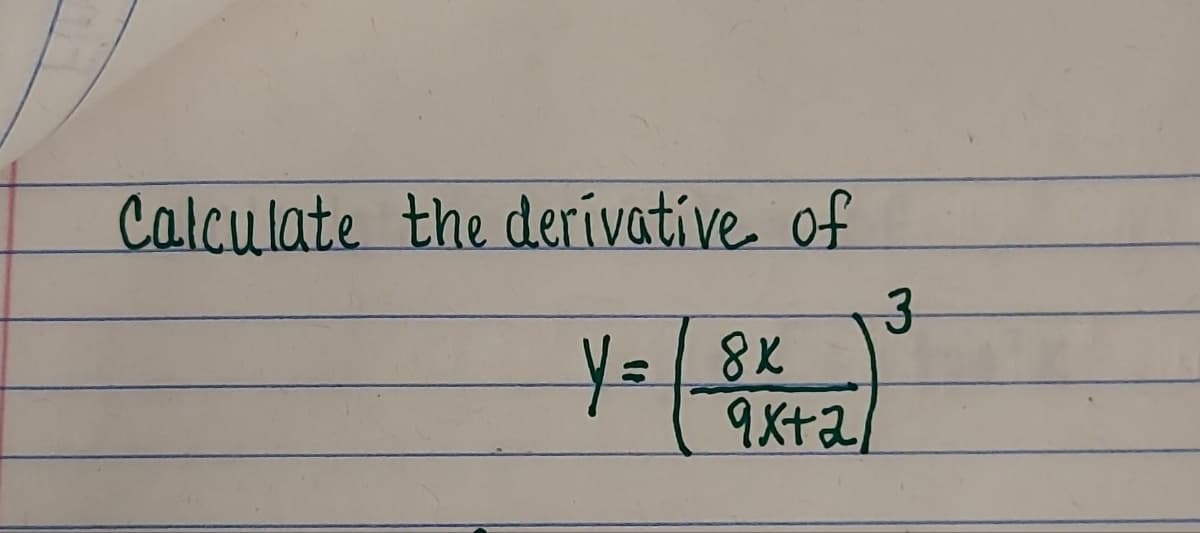 Calculate the derivative of
y = ( 8x / 9x+2 )^3